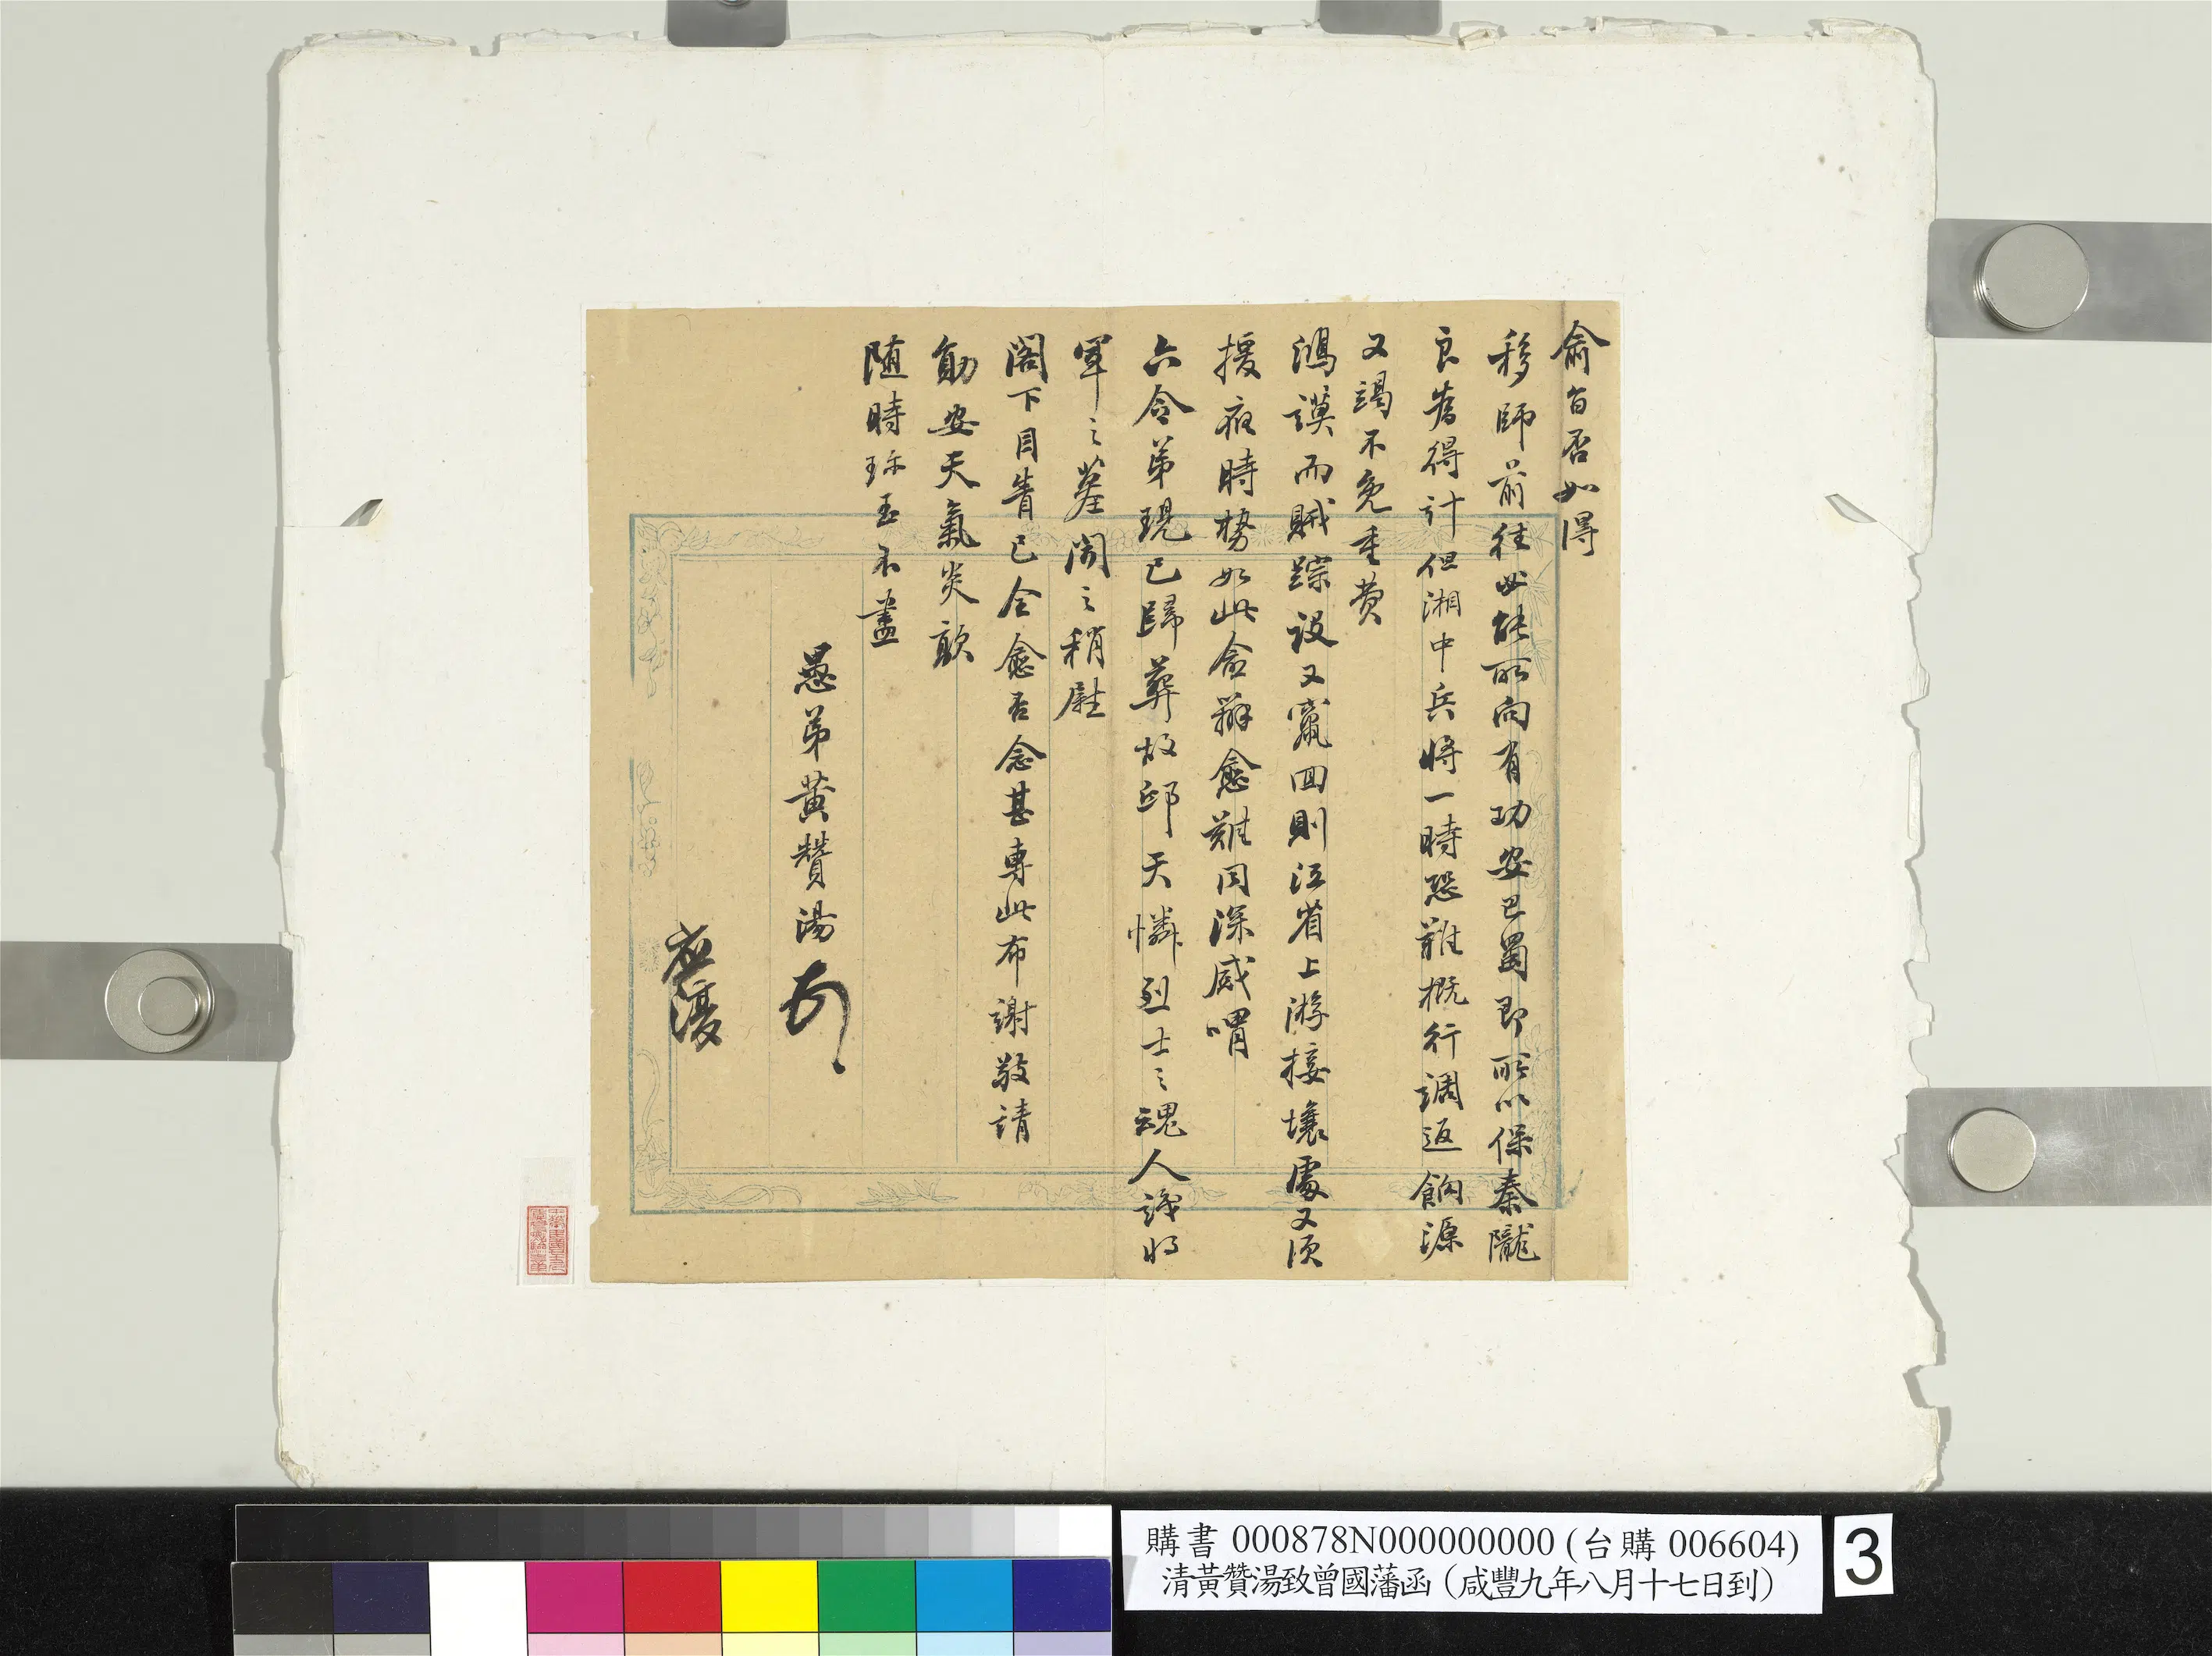 俞旨否如得
移師前往必能所向有功安巴蜀即所以保秦隴
良為得計但湘中兵將一時恐難概行調返餉源
又竭不免重費
鴻謨而賊蹤設又竄回則江省上游接壤處又須
援夜時勢如此會辦愈難同深感喟
六令弟現已歸葬故邱天憐烈士之魂人識將
軍之墓聞之稍慰
閣下目眚已全愈否念甚專此布謝敬請
勛安天氣炎歊
隨時珍玉不盡
愚弟黃贊湯
購書 000878N000000000 (台購 006604)
清黃贊湯致曾國藩函（咸豐九年八月十七日到）
3